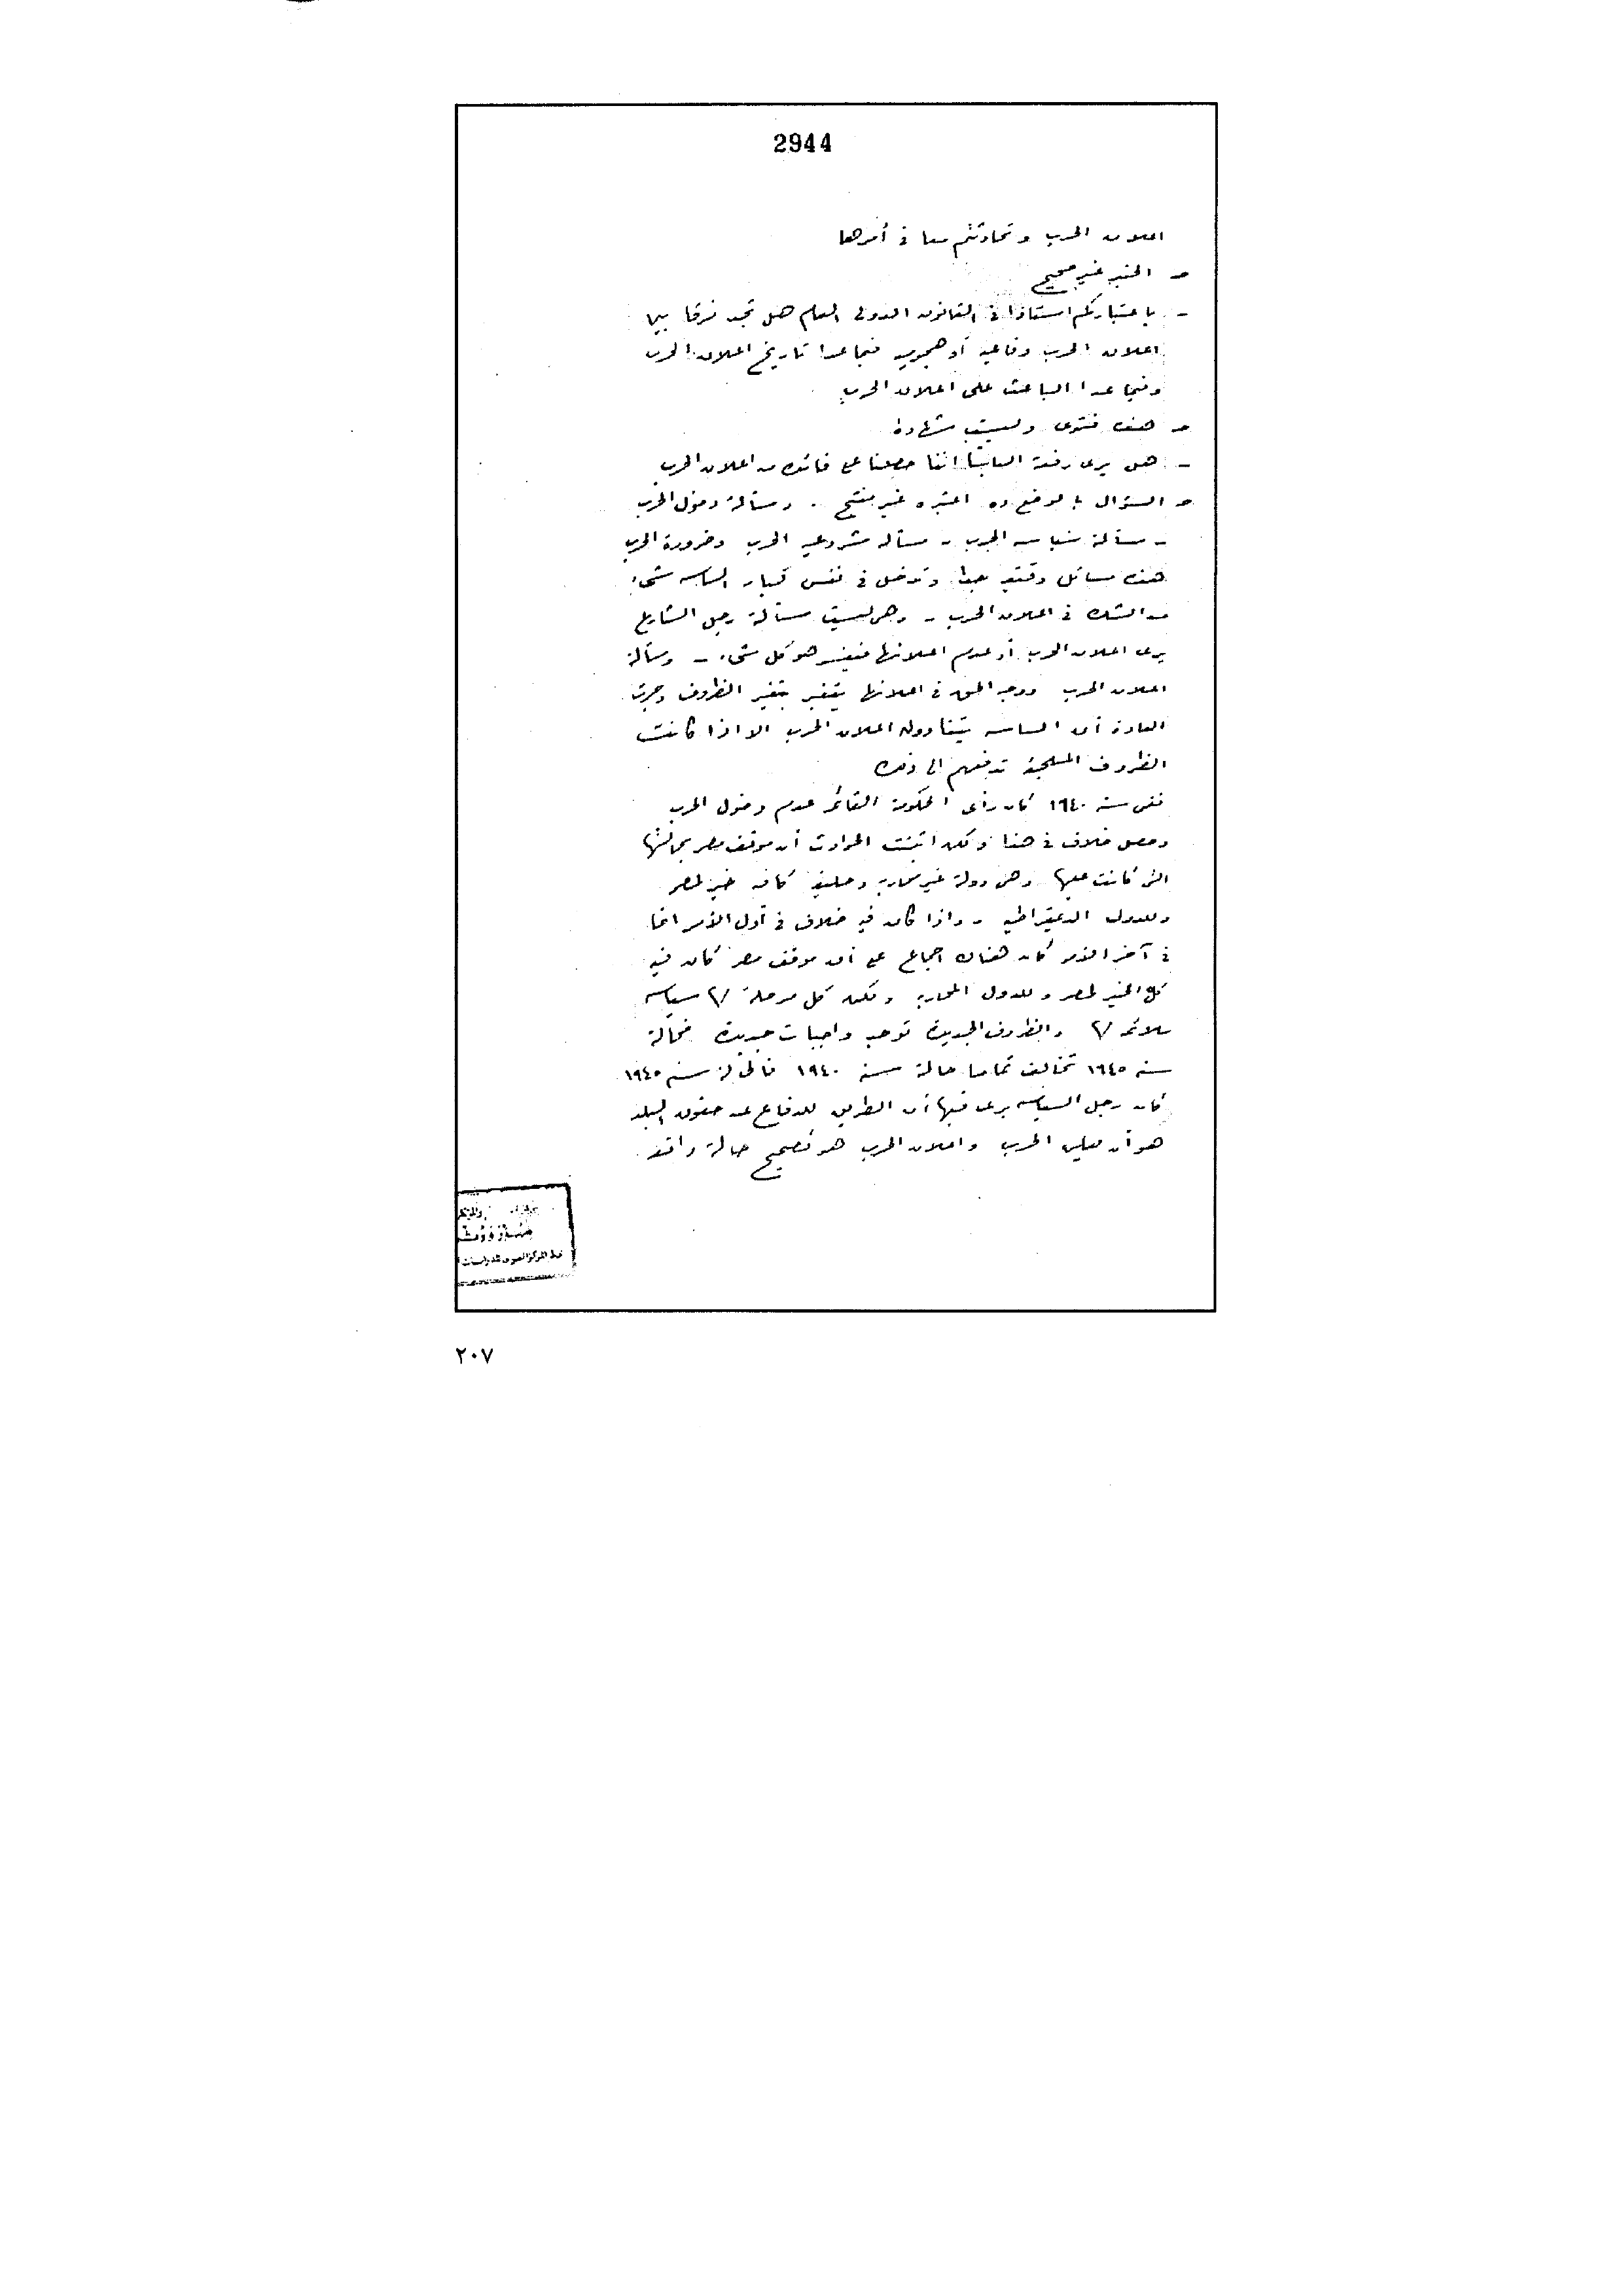 2944
اعلان الحرب وتحادثتم معا فى أمرها
ـ الخبر غير صحيح
ـ باعتباركم استاذا فى القانون الدولى العام هل تجد فرقا بين
اعلان الحرب دفاعية أو هجومية فيما عدا تاريخ اعلان الحرب
وفيما عدا الباعث على اعلان الحرب
ـ هذه فتوى وليست شهادة
ـ هل يرى رفعة الباشا اننا حصلنا على فائدة من اعلان الحرب
ـ السؤال بالوضع ده اعتبره غير منتج . ومسألة دخول الحرب
ـ مسألة سياسة الحرب ـ مسألة مشروعية الحرب وضرورة الحرب
هذه مسائل دقيقة جدا وتدخل فى نفس كبار الساسة شىء
من الشك فى اعلان الحرب ـ وهى ليست مسألة رجل الشارع
يرى اعلان الحرب أو عدم اعلانها فيفسر هو كل شىء ـ ومسألة
اعلان الحرب ووجه الحق فى اعلانها يتغير بتغير الظروف وجرت
العادة أن الساسة يتفادون اعلان الحرب الا اذا كانت
الظروف الملجئة تدفعهم الى ذلك
ففى سنة ١٩٤٠ كان رأى الحكومة القائمة عدم دخول الحرب
وحصل خلاف فى هذا ولكن اثبتت الحوادث أن موقف مصر بحالتها
التى كانت عليها وهى دولة غير محاربة وحليفة كان فيه خير لمصر
وللدول الديمقراطية ـ واذا كان فيه خلاف فى أول الأمر انما
فى آخر الأمر كان هناك اجماع على أن موقف مصر كان فيه
كل الخير لمصر وللدول المحاربة ولكن كل مرحلة لها سياسة
ملائمة لها والظروف الجديدة توجب واجبات جديدة فحالة
سنة ١٩٤٥ تخالف تماما حالة سنة ١٩٤٠ فالحالة سنة ١٩٤٥
كان رجل السياسة يرى فيها أن الطريق للدفاع عن حقوق البلد
هو أن يعلن الحرب واعلان الحرب هو تصحيح حالة واقعة
٢٠٧